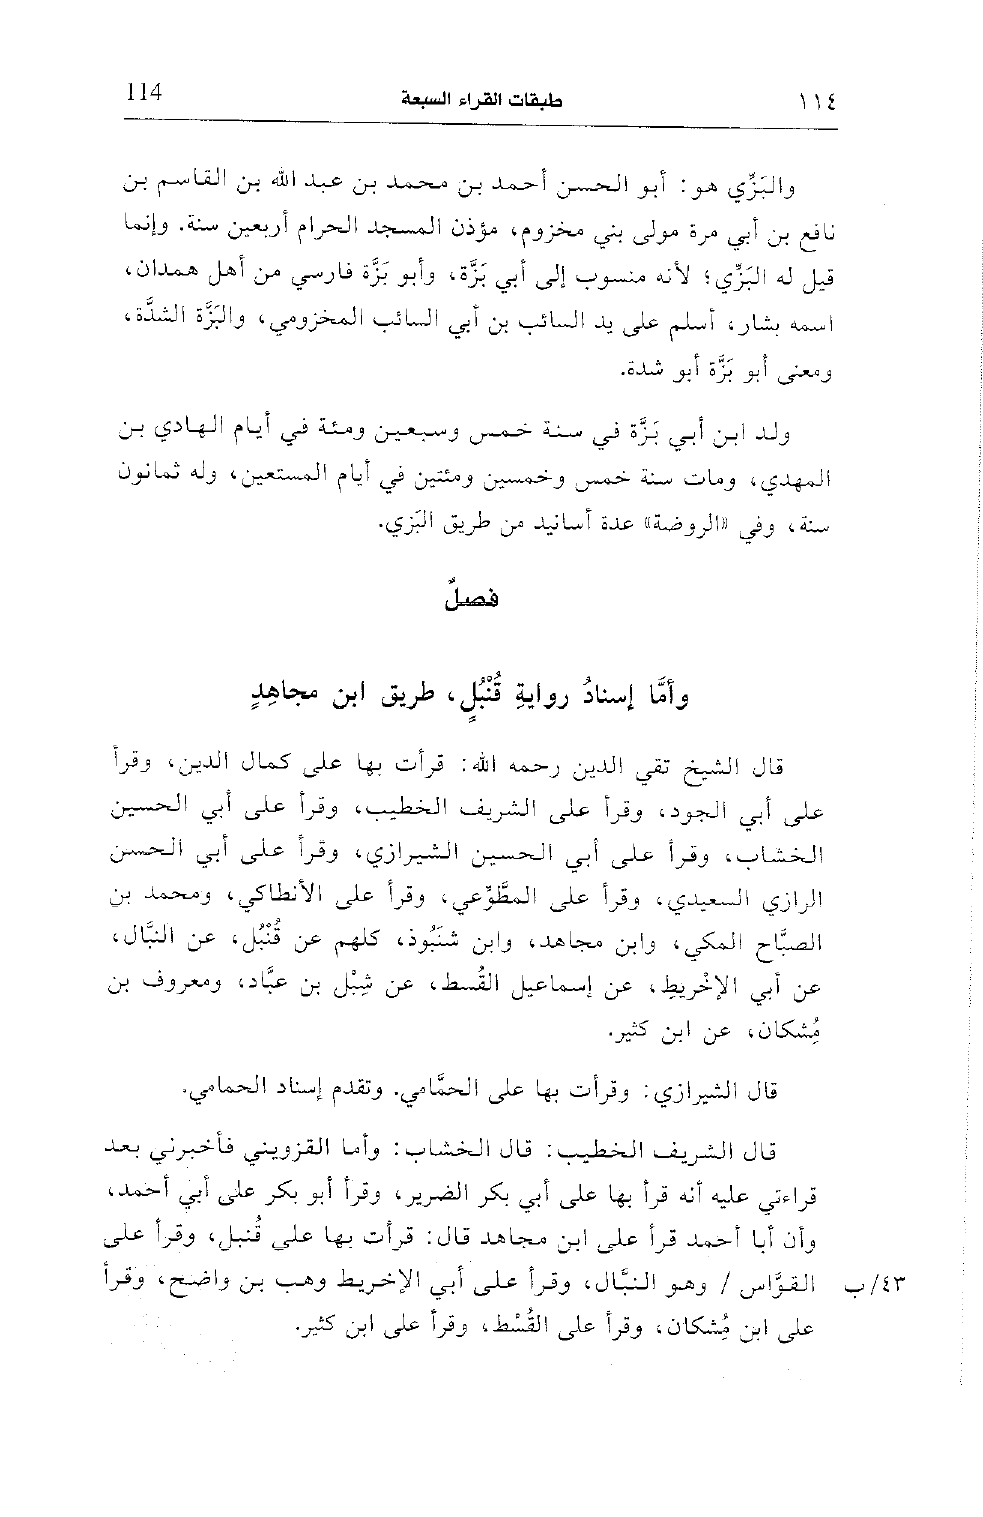 ١١٤ طبقات القراء السبعة 114
والبَزِّي هو: أبو الحسن أحمد بن محمد بن عبد الله بن القاسم بن
نافع بن أبي مرة مولى بني مخزوم، مؤذن المسجد الحرام أربعين سنة. وإنما
قيل له البَزِّي؛ لأنه منسوب إلى أبي بَزَّة، وأبو بَزَّة فارسي من أهل همدان،
اسمه بشار، أسلم على يد السائب بن أبي السائب المخزومي، والبَزَّة الشدَّة،
ومعنى أبو بَزَّة أبو شدة.
ولد ابن أبي بَزَّة في سنة خمس وسبعين ومئة في أيام الهادي بن
المهدي، ومات سنة خمس وخمسين ومئتين في أيام المستعين، وله ثمانون
سنة، وفي «الروضة» عدة أسانيد من طريق البَزي.
فصلٌ
وأمَّا إسنادُ روايةِ قُنْبُلٍ، طريق ابن مجاهِدٍ
قال الشيخ تقي الدين رحمه الله: قرأت بها على كمال الدين، وقرأ
على أبي الجود، وقرأ على الشريف الخطيب، وقرأ على أبي الحسين
الخشاب، وقرأ على أبي الحسين الشيرازي، وقرأ على أبي الحسن
الرازي السعيدي، وقرأ على المطَّوِّعي، وقرأ على الأنطاكي، ومحمد بن
الصبَّاح المكي، وابن مجاهد، وابن شَنَبُوذ، كلهم عن قُنْبُل، عن النبَّال،
عن أبي الإخْريط، عن إسماعيل القُسط، عن شِبْل بن عبَّاد، ومعروف بن
مُِشكان، عن ابن كثير.
قال الشيرازي: وقرأت بها على الحمَّامي. وتقدم إسناد الحمامي.
قال الشريف الخطيب: قال الخشاب: وأما القزويني فأخبرني بعد
قراءتي عليه أنه قرأ بها على أبي بكر الضرير، وقرأ أبو بكر على أبي أحمد،
وأن أبا أحمد قرأ على ابن مجاهد قال: قرأت بها على قُنبل، وقرأ على
٤٣/ب القوَّاس / وهو النبَّال، وقرأ على أبي الإخريط وهب بن واضح، وقرأ
على ابن مُِشكان، وقرأ على القُسْط، وقرأ على ابن كثير.